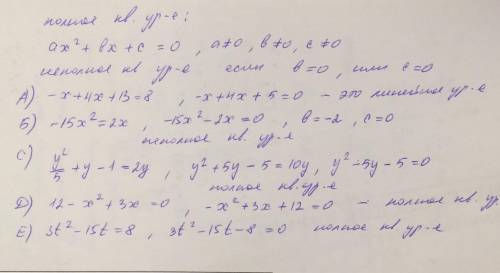 полное кв. ур-е:
ax² + bx + c = 0 , a≠0, b≠0, c≠0
неполное кв ур-е если b=0, или c=0
А) -x+4x+13=8 , -x+4x+5=0 - это линейное ур-е
Б) -15x²=2x, -15x²-2x=0 , b=-2, c=0
неполное кв. ур-е
С) y²/5 + y - 1 = 2y , y²+5y-5=10y, y²-5y-5=0
полное кв. ур-е
Д) 12-x²+3x=0 , -x²+3x+12=0 - полное кв. ур
Е) 3t²-15t=8 , 3t²-15t-8=0 полное кв. ур-е